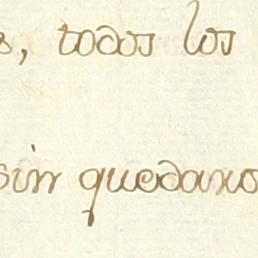 s, todos los
sin quedanos